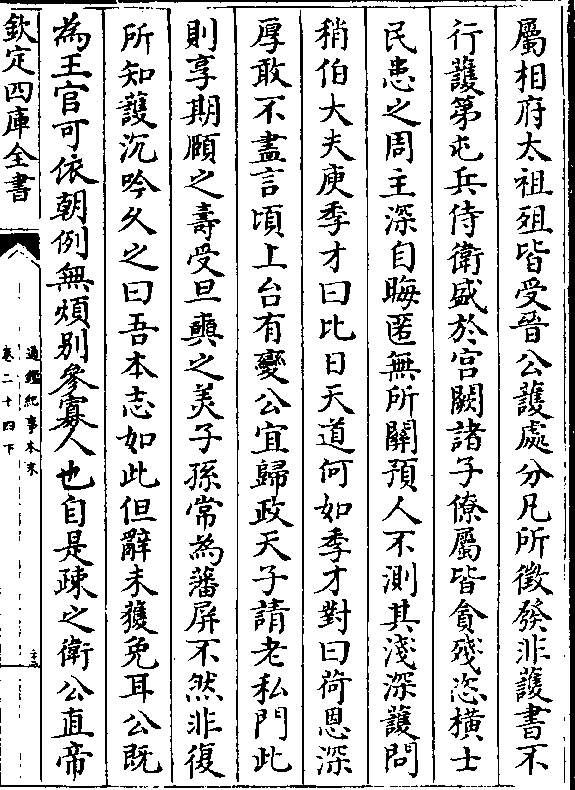 屬相府太祖殂皆受晉公護處分凡所徵發非護書不
行護第屯兵侍衛盛於宫闕諸子僚屬皆貪殘恣橫士
民患之周主深自晦匿無所關預人不測其淺深護問
稍伯大夫庾季才曰比日天道何如季才對曰荷恩深
厚敢不盡言頃上台有變公宜歸政天子請老私門此
則享期頤之壽受旦奭之美子孫常為藩屏不然非復
所知護沉吟久之曰吾本志如此但辭未獲免耳公既
為王官可依朝例無煩别參寡人也自是疎之衛公直帝
欽定四庫全書
通鑑紀事本末
卷二十四下